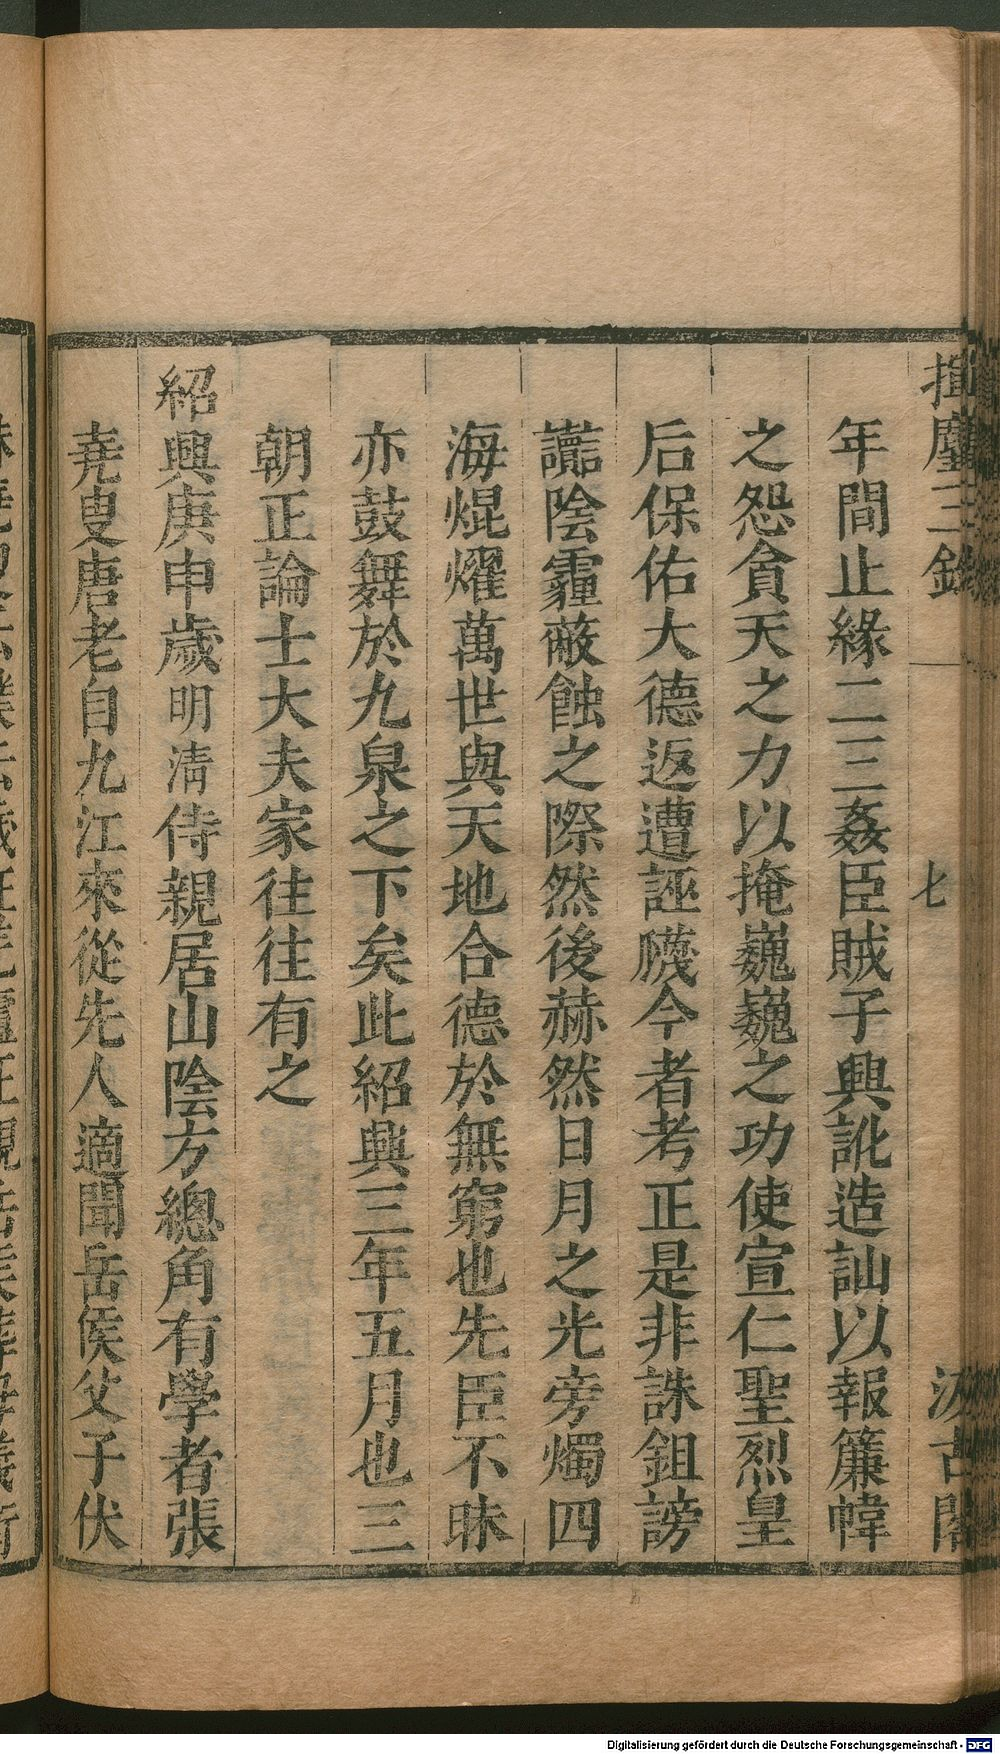 揮麈三錄
七
汲古閣
年間止緣二三姦臣賊子興訛造訕以報簾幃
之怨貪天之力以掩巍巍之功使宣仁聖烈皇
后保佑大德返遭誣衊今者考正是非誅鉏謗
讟陰霾蔽蝕之際然後赫然日月之光旁燭四
海焜燿萬世與天地合德於無窮也先臣不昧
亦鼓舞於九泉之下矣此紹興三年五月也三
朝正論士大夫家往往有之
紹興庚申歲明清侍親居山陰方總角有學者張
堯叟唐老自九江來從先人適聞岳侯父子伏
Digitalisierung gefördert durch die Deutsche Forschungsgemeinschaft - DFG